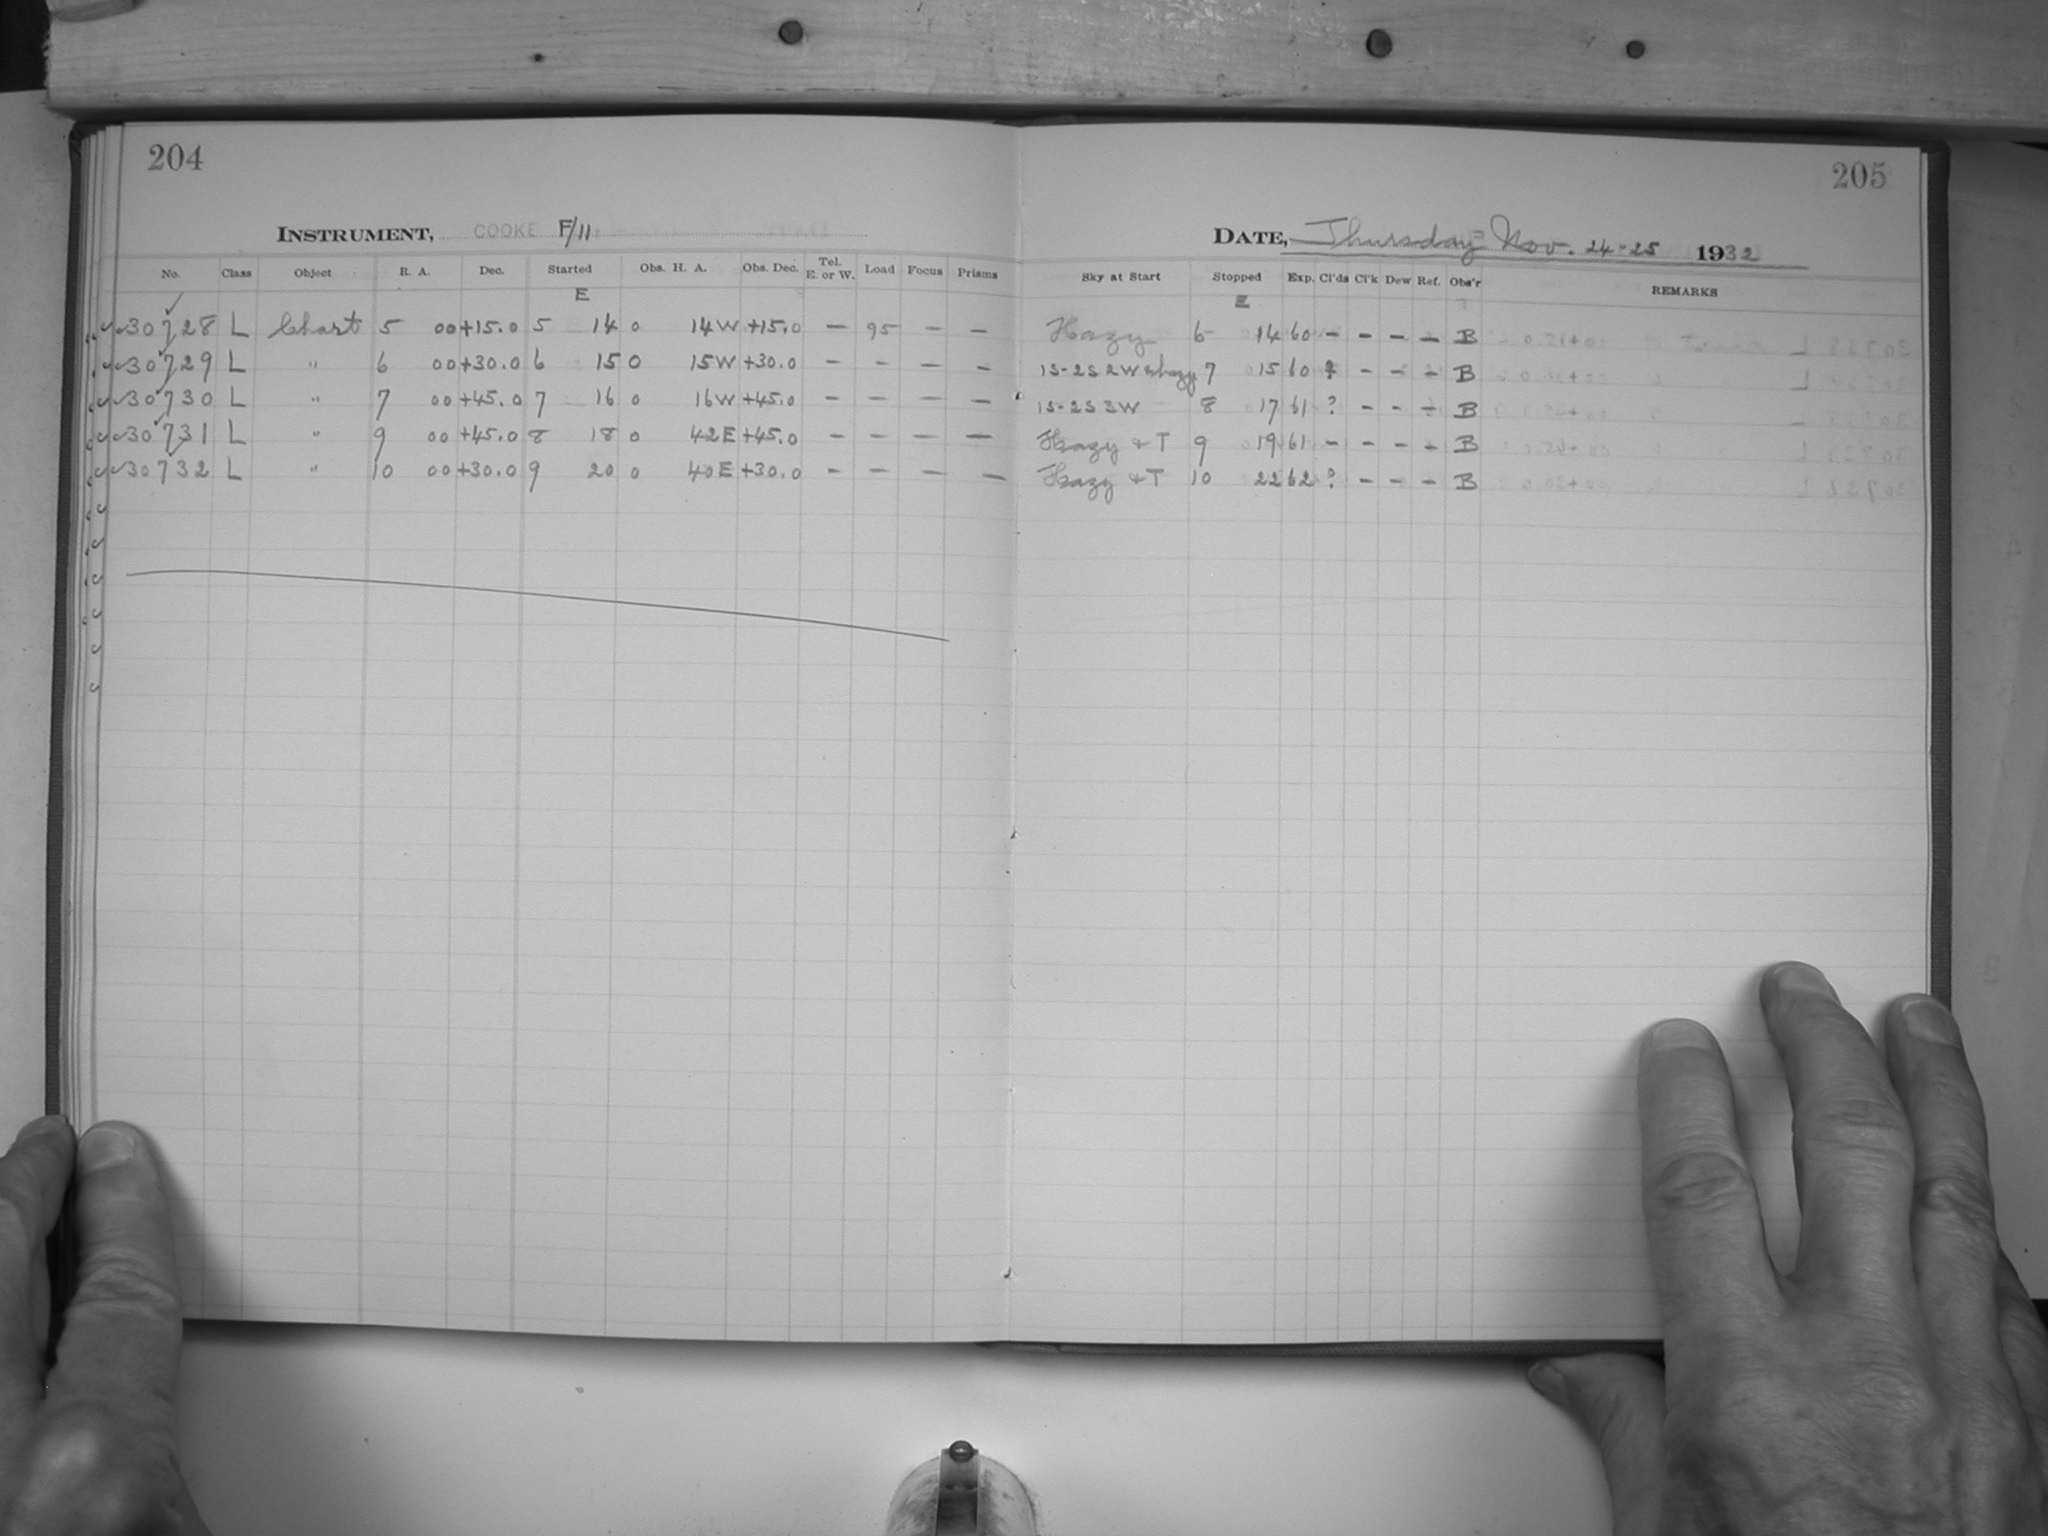 204
INSTRUMENT, COOKE F/11
No. Class Object R. A. Dec. Started Obs. H. A. Obs. Dec. Tel. E. or W. Load Focus Prisms
E
30728 L Chart 5 00 +15.0 5 14 0 14W +15.0 — 95 — —
30729 L " 6 00 +30.0 6 15 0 15W +30.0 — — — —
30730 L " 7 00 +45.0 7 16 0 16W +45.0 — — — —
30731 L " 9 00 +45.0 8 18 0 42E +45.0 — — — —
30732 L " 10 00 +30.0 9 20 0 40E +30.0 — — — —
205
DATE, Thursday Nov. 24-25 1932
Sky at Start Stopped Exp. Cl'ds Cl'k Dew Ref. Obs'r REMARKS
E
Hazy 6 14 60 — — — — B
1S-2S 2W & hazy 7 15 60 ? — — — B
1S-2S 3W 8 17 61 ? — — — B
Hazy & T 9 19 61 — — — — B
Hazy & T 10 22 62 ? — — — B